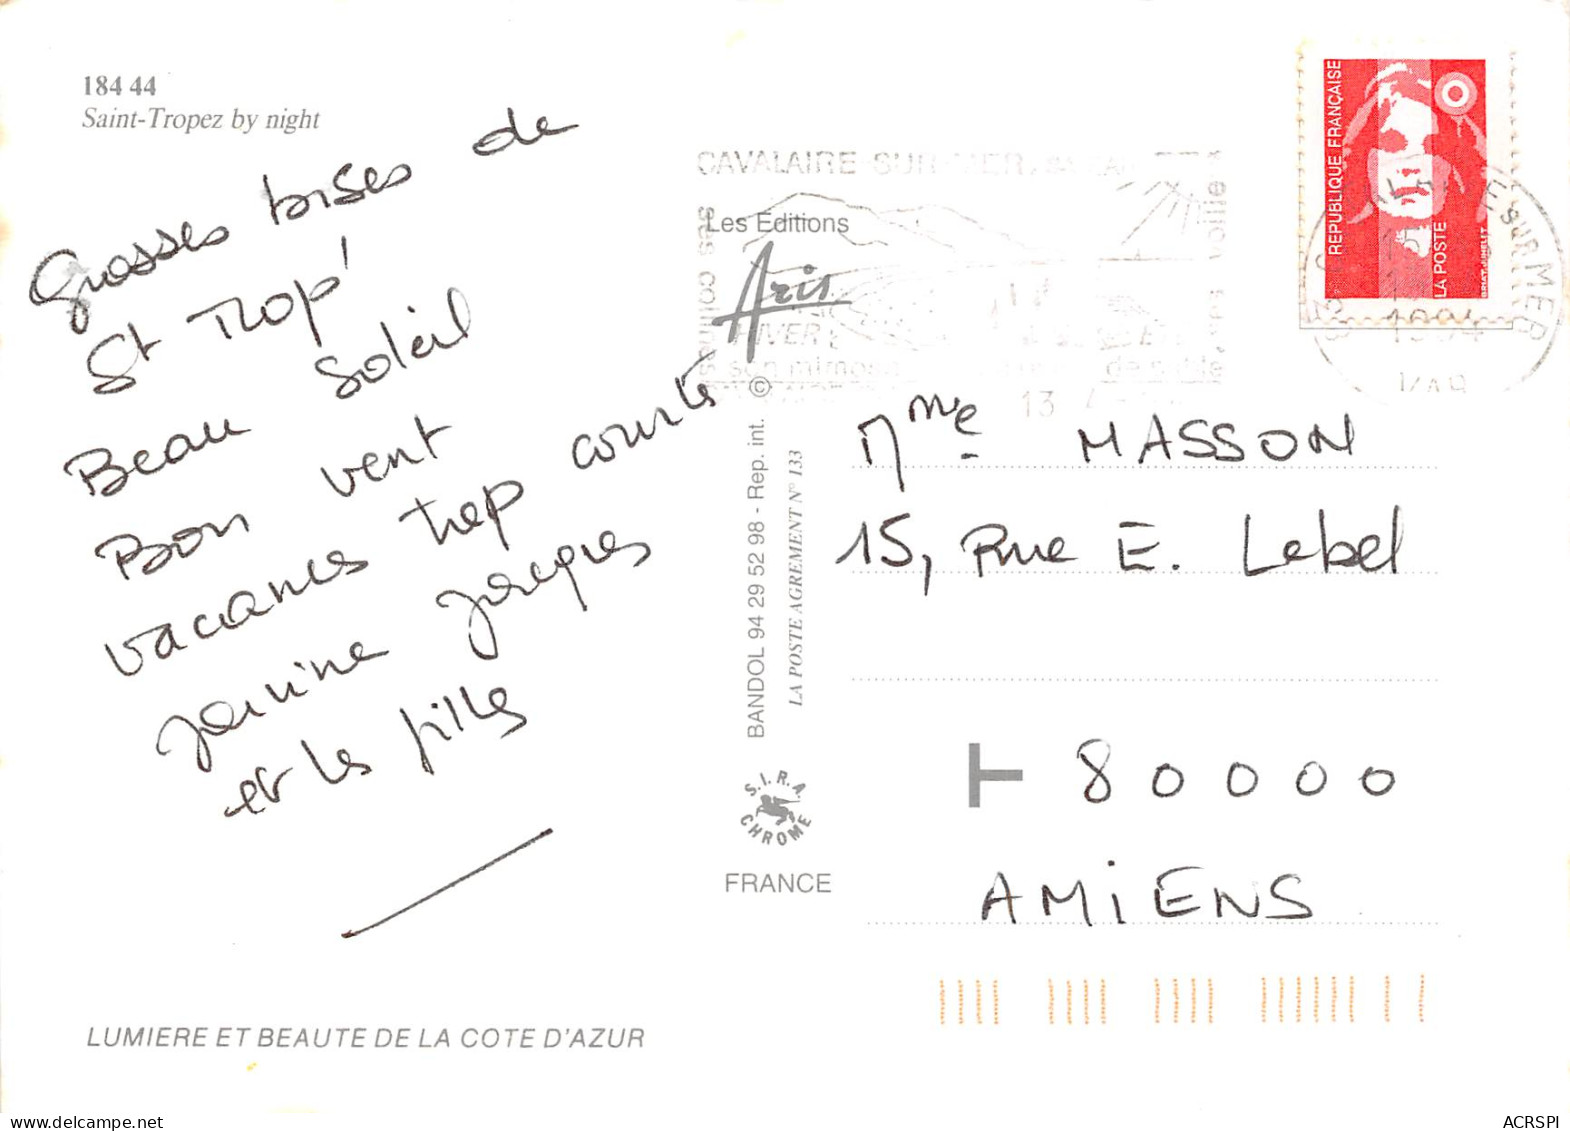 184 44
Saint-Tropez by night
Grosses bises de
St Trop'
Beau soleil
Bon vent
vacances trop courtes
Janine Jacques
et les filles
LUMIERE ET BEAUTE DE LA COTE D'AZUR
Les Editions
Aris
©
BANDOL 94 29 52 98 - Rep. int.
LA POSTE AGREMENT N° 133
S.I.R.A.
CHROME
FRANCE
CAVALAIRE-SUR-MER
ses collines
HIVER
son mimosa
de sable
13
REPUBLIQUE FRANÇAISE
LA POSTE
SUR MER
1994
VAR
Mme MASSON
15, Rue E. Lebel
80000
AMIENS
ACRSPI